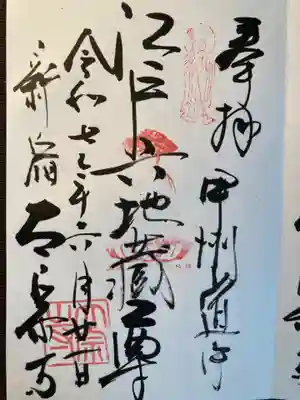 奉拝
甲州道中
江戸六地蔵尊
令和七年六月廿一日
新宿 太宗寺